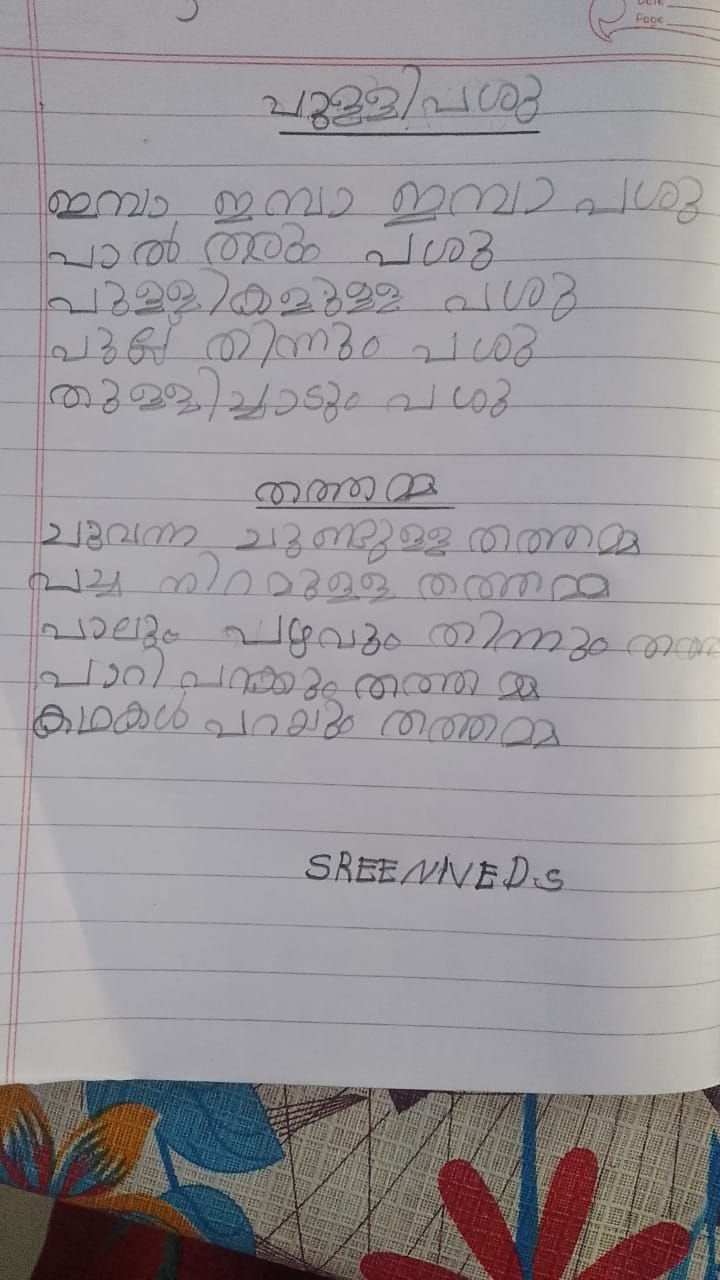 Date
Page
പുള്ളിപശു
ഇമ്പാ ഇമ്പാ ഇമ്പാ പശു
പാൽ തരും പശു
പുള്ളികളുള്ള പശു
പുല്ല് തിന്നും പശു
തുള്ളിച്ചാടും പശു
തത്തമ്മ
ചുവന്ന ചുണ്ടുള്ള തത്തമ്മ
പച്ച നിറമുള്ള തത്തമ്മ
പാലും പഴവും തിന്നും
പാറി പറക്കും തത്തമ്മ
കഥകൾ പറയും തത്തമ്മ
SREENIVED.S